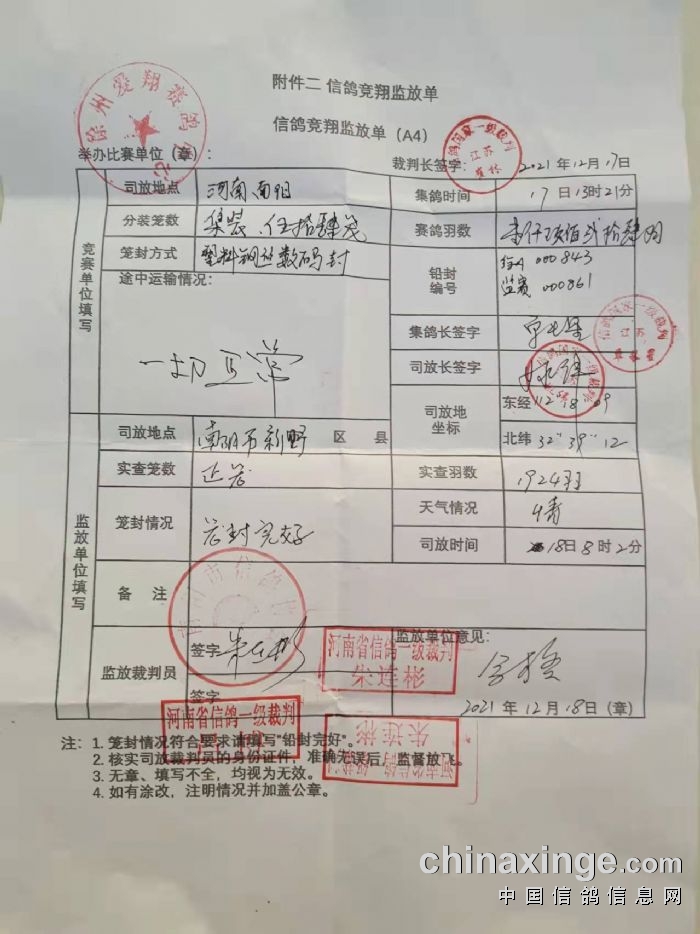 附件二 信鸽竞翔监放单
信鸽竞翔监放单（A4）
举办比赛单位（章）：
裁判长签字：
2021年12月17日
司放地点 河南南阳
集鸽时间 17日13时21分
分装笼数 集装、伍拾肆笼
赛鸽羽数
笼封方式 塑料钢丝数码封
铅封编号 000843
监赛 000861
途中运输情况：
一切正常
竞赛单位填写
集鸽长签字
司放长签字
司放地坐标 东经112 18 09
北纬32 39 12
司放地点 南阳市新野 区 县
实查笼数
实查羽数 1924羽
笼封情况 笼封完好
天气情况 晴
司放时间 18日8时2分
监放单位填写
备 注
监放裁判员
签字 朱连彬
签字
监放单位意见：
合格
2021年12月18日（章）
河南省信鸽一级裁判
朱连彬
河南省信鸽一级裁判
朱连彬
河南省信鸽一级裁判
注：1. 笼封情况符合要求请填写"铅封完好"。
2. 核实司放裁判员的身份证件，准确无误后，监督放飞。
3. 无章、填写不全，均视为无效。
4. 如有涂改，注明情况并加盖公章。
chinaxinge.com
中国信鸽信息网